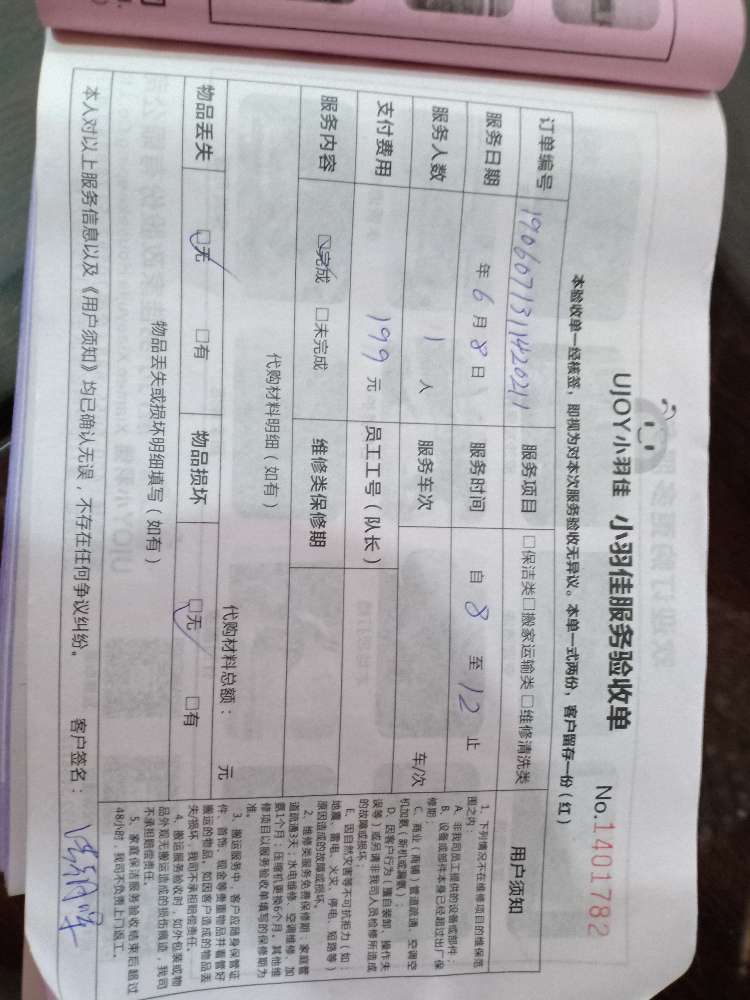 UJOY小羽佳 小羽佳服务验收单
No.1401782
本验收单一经核签，即视为对本次服务验收无异议。本单一式两份，客户留存一份（红）
订单编号 190607131142021 服务项目 □保洁类□搬家运输类□维修清洗类
服务日期 年 6 月 8 日 服务时间 自 8 至 12 止
服务人数 1 人 服务车次 车/次
支付费用 199 元 员工工号（队长）
服务内容 ☑完成 □未完成 维修类保修期
代购材料明细（如有） 代购材料总额： 元
物品丢失 ☑无 □有 物品损坏 ☑无 □有
物品丢失或损坏明细填写（如有）
本人对以上服务信息以及《用户须知》均已确认无误，不存在任何争议纠纷。 客户签名：
用户须知
1、下列情况不在维修项目的维保范
围之内：
A、非我司员工提供的设备或部件；
B、设备或部件本身已经超过出厂保
修期；
C、商业（商铺）管道疏通、空调空
机加氨（新机或漏氨）；
D、因客户行为（擅自装卸、操作失
误等）或另请非我司人员检修所造成
的故障或损坏；
E、因自然灾害等不可抗拒力（如：
地震、雷电、火灾、停电、短路等）
原因造成的故障或损坏。
2、维修类服务免费保修期：家庭管
道疏通3天；水电维修、空调维修、加
氨1个月；压缩机更换6个月，其他维
修项目以服务验收单填写的保修期为
准。
3、搬运服务中，客户应随身保管证
件、首饰、现金等贵重物品并看管好
搬运的物品，如因客户造成的物品丢
失/损坏，我司不承担赔偿责任。
4、搬运服务验收时，如外包装或物
品外观无搬运造成的损伤痕迹，我司
不承担赔偿责任。
5、家庭保洁服务验收结束后超过
48小时，我司不负责上门返工。